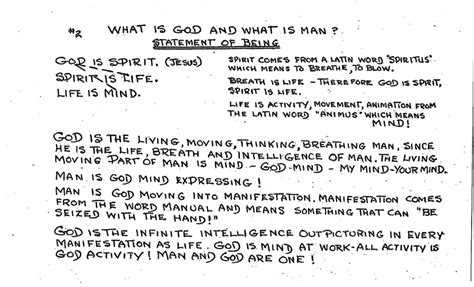 #2 WHAT IS GOD AND WHAT IS MAN?
STATEMENT OF BEING
GOD IS SPIRIT. (JESUS)
SPIRIT IS LIFE.
LIFE IS MIND.
SPIRIT COMES FROM A LATIN WORD "SPIRITUS"
WHICH MEANS TO BREATHE, TO BLOW.
BREATH IS LIFE - THEREFORE GOD IS SPIRIT,
SPIRIT IS LIFE.
LIFE IS ACTIVITY, MOVEMENT, ANIMATION FROM
THE LATIN WORD "ANIMUS" WHICH MEANS
MIND!
GOD IS THE LIVING, MOVING, THINKING, BREATHING MAN. SINCE
HE IS THE LIFE, BREATH AND INTELLIGENCE OF MAN. THE LIVING
MOVING PART OF MAN IS MIND - GOD-MIND - MY MIND-YOUR MIND.
MAN IS GOD MIND EXPRESSING!
MAN IS GOD MOVING INTO MANIFESTATION. MANIFESTATION COMES
FROM THE WORD MANUAL AND MEANS SOMETHING THAT CAN "BE
SEIZED WITH THE HAND!"
GOD IS THE INFINITE INTELLIGENCE OUTPICTURING IN EVERY
MANIFESTATION AS LIFE. GOD IS MIND AT WORK-ALL ACTIVITY IS
GOD ACTIVITY! MAN AND GOD ARE ONE!